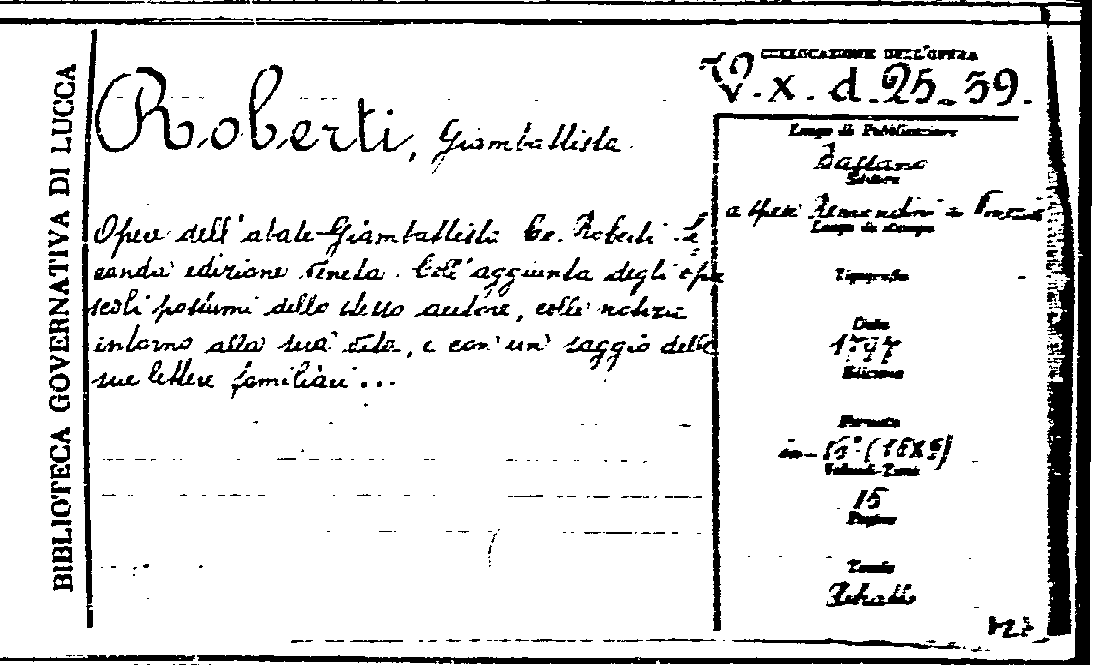 BIBLIOTECA GOVERNATIVA DI LUCCA
Roberti, Giambattista
Opere dell'abate Giambattista Co. Roberti. Se
conda edizione veneta. Coll'aggiunta degli opu
scoli postumi dello stesso autore, colle notizie
intorno alla sua vita, e con un saggio delle
sue lettere familiari...
COLLOCAZIONE DELL'OPERA
V. x. d. 25-39.
Luogo di Pubblicazione
Bassano
Editore
a spese Remondini di Venezia
Luogo di stampa
Tipografia
Data
1797
Edizione
Formato
in-16° (18x9)
Volumi-Tomi
15
Pagine
Tavole
Ritratto